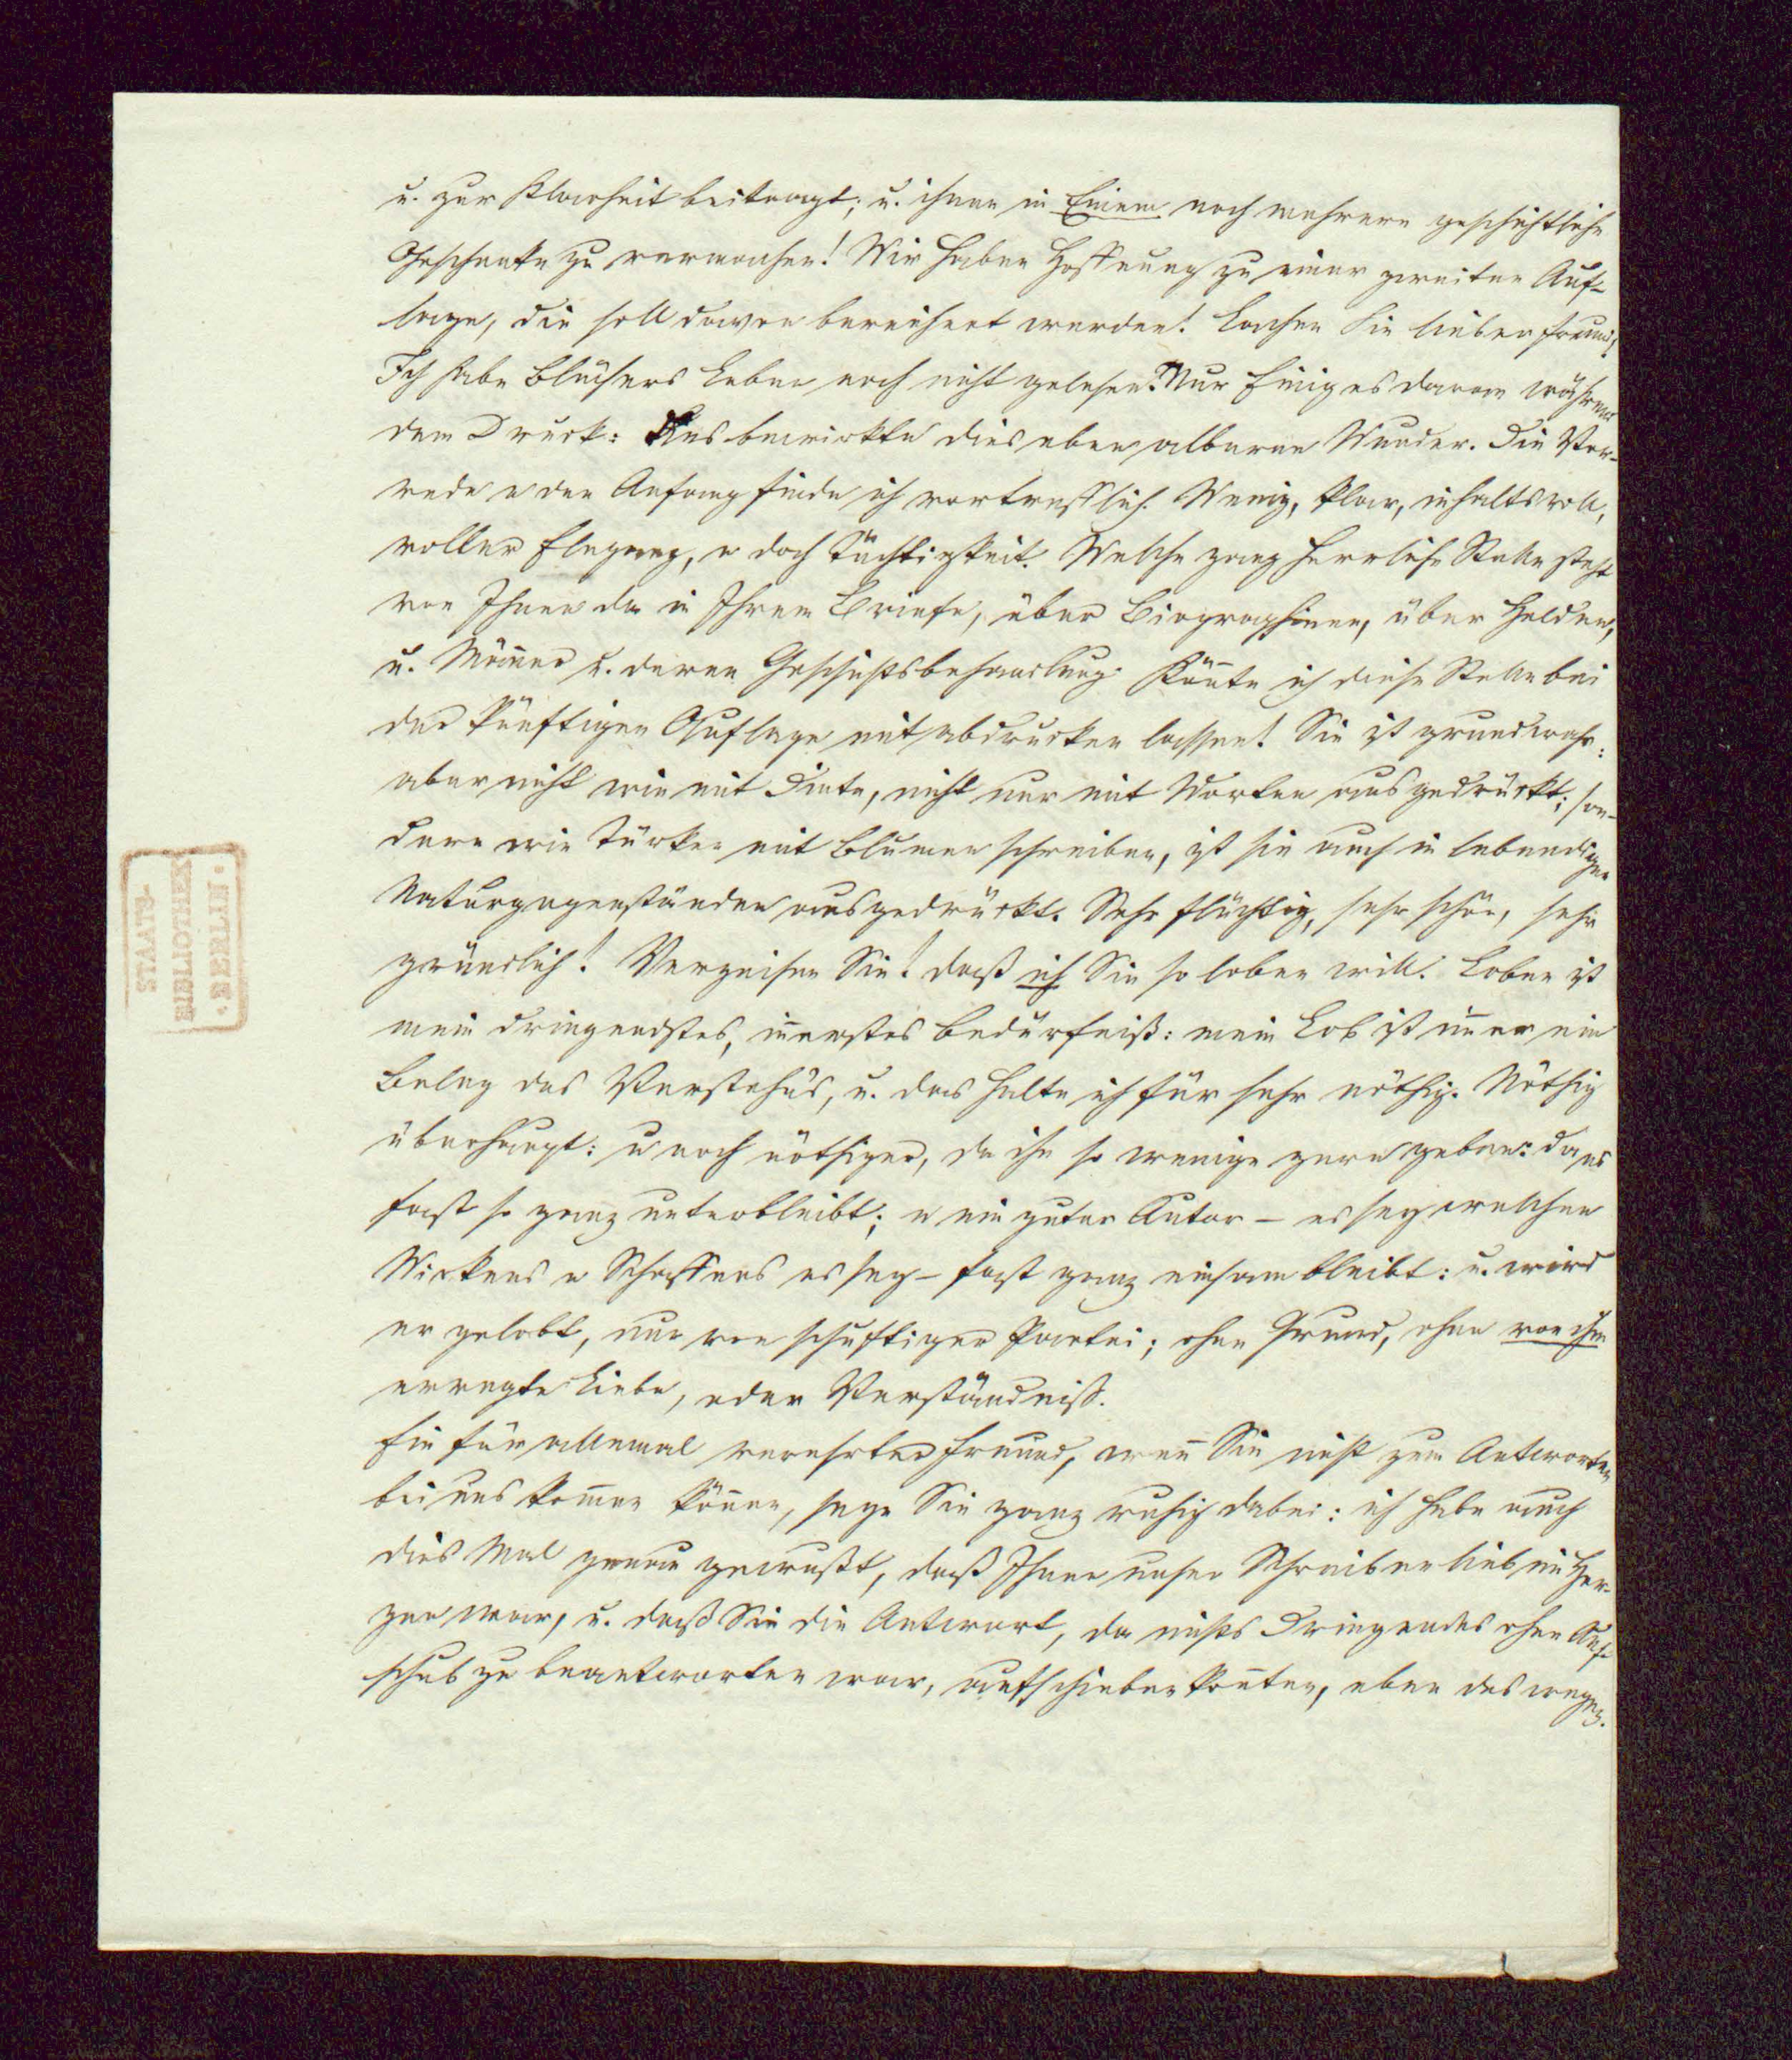 u. zur Klarheit beitragt; u. ihnen in Einem noch mehrere geschichtliche
Geschenke zu vermachen! Wir haben Hoffnung zu einer zweiten Auf-
lage, die soll davon bereichert werden! Lachen Sie lieber Freund!
Ich habe Blüchers Leben noch nicht gelesen. Nur Einiges daraus während
dem Druck: bewirkte dies eben alberne Wunder. Die Vor-
rede u den Anfang finde ich vortrefflich. Wenig, klar, inhaltsvoll,
voller Eleganz, u doch Tüchtigkeit. Welche ganz herrliche Stelle steht
von Ihnen da in Ihrem Briefe, über Biographieen, über Helden,
u. Männer u. deren Geschichtsbehandlung. Könnte ich diese Stelle bei
der künftigen Auflage mit abdrucken lassen! Sie ist grundwahr:
aber nicht wie mit Dinte, nicht nur mit Worten ausgedrückt; son-
dern wie Türken mit Blumen schreiben, ist sie auch in lebendigen
Naturgegenständen ausgedrückt. Sehr flüchtig, sehr schön, sehr
gründlich! Verzeihen Sie! daß ich Sie so loben will. Loben ist
mein dringendstes, innerstes Bedürfniß: mein Lob ist immer ein
Beleg des Verstehn's, u. das halte ich für sehr nöthig. Nöthig
überhaupt: u noch nöthiger, da ihn so wenige gern geben: da es
fast so ganz unterbleibt; u ein guter Autor – es sey welchen
Wirkens u Schaffens es sey – fast ganz einsam bleibt: u. wird
er gelobt, nur von schuftiger Partei; ohne Grund, ohne von ihm
erregte Liebe, oder Verständniß.
Ein für allemal verehrter Freund, wenn Sie nicht zum Antworten
bei uns kommen können, seyn Sie ganz ruhig dabei: ich habe auch
dies Mal genau gewußt, daß Ihnen unser Schreiben lieb im Her-
zen war, u. daß Sie die Antwort, da nichts Dringendes ohne Auf-
schub zu beantworten war, aufschieben konnten, eben deswegen.
STAATS-
BIBLIOTHEK
· BERLIN ·